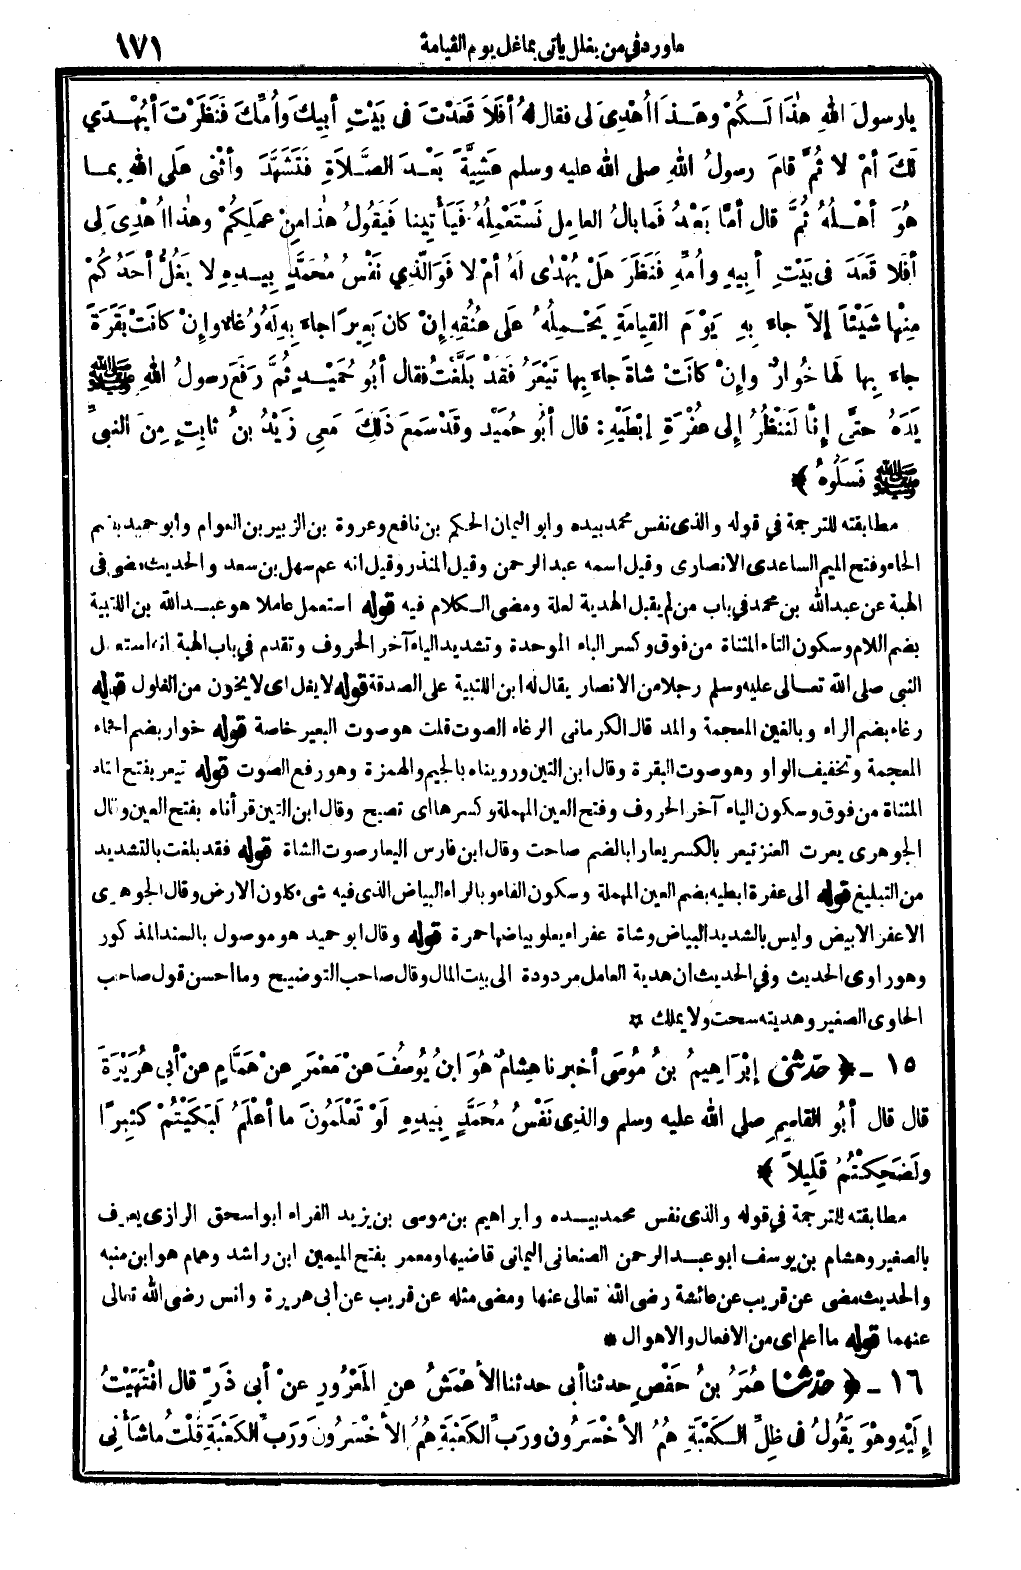 ما ورد في من يغلل يأتى بما غل يوم القيامة ١٧١
يا رسولَ اللهِ هٰذَا لَـكُمْ وهَـذَا أُهْدِىَ لِى فقال لهُ أفَلاَ قَعَدْتَ فى بَيْتِ أبِيكَ وأُمِّكَ فَنَظَرْتَ أيُهْـدَي
لَكَ أمْ لا ثُمَّ قامَ رسولُ اللهِ صلى الله عليه وسلم عَشِيَّةً بَعْـدَ الصَّـلاَةِ فَتَشَهَّدَ وأثْنى عَلَى اللهِ بمـا
هُوَ أهْـلُهُ ثُمَّ قال أمَّا بَعْدُ فَما بالُ العامِلِ نَسْتَعْمِلُهُ فَيَأْتِينا فَيَقُولُ هٰذا مِنْ عَمَلِكُمْ وهٰذا أُهْدِىَ لِى
أفَلا قَعَدَ فى بَيْتِ أبِيهِ وأُمِّهِ فَنَظَرَ هَلْ يُهْدَى لَهُ أمْ لا فَوَالَّذِي نَفْسُ مُحَمَّدٍ بِيَـدِهِ لا يَغُلُّ أحَدُكُمْ
مِنْها شَيْئاً إلاَّ جاءَ بِهِ يَوْمَ القِيامَةِ يَحْـمِلُهُ عَلى عُنُقِهِ إنْ كان بَعِيرًا جاءَ بِهِ لَهُ رُغاءٌ وإنْ كانَتْ بَقَرَةً
جاءَ بِها لَها خُوارٌ وإنْ كانَتْ شاةً جاءَ بِها تَيْعَرُ فَقَدْ بَلَّغْتُ فقال أبُو حُمَيْـدٍ ثُمَّ رَفَعَ رسولُ اللهِ ﷺ
يَدَهُ حتَّى إنَّا لَنَنْظُرُ إلى عُفْرَةِ إبْطَيْهِ: قال أبُو حُمَيْد وقَدْ سَمِعَ ذَلِكَ مَعِى زَيْدُ بنُ ثابِتٍ مِنَ النبىِّ
ﷺ فَسَلُوهُ ﴾
مطابقته للترجمة في قوله والذى نفس محمد بيده وابو اليمان الحكم بن نافع وعروة بن الزبير بن العوام وأبو حميد بضم
الحاء وفتح الميم الساعدى الانصارى وقيل اسمه عبد الرحمن وقيل المنذر وقيل انه عم سهل بن سعد والحديث مضى فى
الهبة عن عبد الله بن محمد في باب من لم يقبل الهدية لعلة ومضى الـكلام فيه قوله استعمل عاملا هو عبـد الله بن اللتبية
بضم اللام وسكون التاء المثناة من فوق وكسر الباء الموحدة وتشديد الياء آخر الحروف وتقدم في باب الهبة انه استعمل
النبى صلى الله تعـالى عليه وسلم رجلا من الانصار يقال له ابن اللتبية على الصدقة قوله لا يغل اى لا يخون من الغلول قوله
رغاء بضم الراء وبالغين المعجمة والمد قال الكرمانى الرغاء الصوت قلت هو صوت البعير خاصة قوله خوار بضم الخاء
المعجمة وتخفيف الواو وهو صوت البقرة وقال ابن التين ورويناه بالجيم والهمزة وهو رفع الصوت قوله تيعر بفتح التاء
المثناة من فوق وسكون الياء آخر الحروف وفتح العين المهملة وكسرها اى تصيح وقال ابن التين قرأناه بفتح العين وقال
الجوهرى يعرت العنز تيعر بالكسر يعارا بالضم صاحت وقال ابن فارس اليعار صوت الشاة قوله فقد بلغت بالتشديد
من التبليغ قوله الى عفرة ابطيه بضم العين المهملة وسكون الفاء وبالراء البياض الذى فيه شىء كلون الارض وقال الجوهرى
الاعفر الابيض وليس بالشديد البياض وشاة عفراء يعلو بياضها حمرة قوله وقال ابو حميد هو موصول بالسند المذكور
وهو راوى الحديث وفي الحديث ان هدية العامل مردودة الى بيت المال وقال صاحب التوضيح وما احسن قول صاحب
الحاوى الصغير وهديته سحت ولا يملك ✡
١٥ ـ ﴿ حَدّثنى إبْرَاهِيمُ بنُ مُوسَى أخبرنا هِشامٌ هُوَ ابنُ يُوسُفَ عنْ مَعْمَرٍ عنْ هَمَّامٍ عنْ أبى هُرَيْرَةَ
قال قال أبُو القاسِمِ صلى الله عليه وسلم والذِى نَفْسُ مُحَمَّدٍ بِيَدِهِ لَوْ تَعْلَمُونَ ما أعْلَمُ لَبَكَيْتُمْ كَثِيرًا
ولَضَحِكْتُمْ قَلِيلاً ﴾
مطابقته للترجمة في قوله والذى نفس محمد بيـده وابراهيم بن موسى بن يزيد الفراء ابو اسحق الرازى يعرف
بالصغير وهشام بن يوسف ابو عبـد الرحمن الصنعانى اليمانى قاضيها ومعمر بفتح الميمين ابن راشد وهمام هو ابن منبه
والحديث مضى عن قريب عن عائشة رضى الله تعالى عنها ومضى مثله عن قريب عن أبى هريرة وانس رضى الله تعالى
عنهما قوله ما أعلم اى من الافعال والاهوال *
١٦ ـ ﴿ حَدّثنا عُمَرُ بنُ حَفْصٍ حدثنا أبى حدثنا الأعْمَشُ عنِ المَعْرُورِ عنْ أبى ذَرٍّ قال انْتَهَيْتُ
إلَيْهِ وهْوَ يَقُولُ فى ظِلِّ الـكَعْبَةِ هُمُ الأخْسَرُون ورَبِّ الكَعْبَةِ هُمُ الأخْسَرُونَ ورَبِّ الكَعْبَةِ قُلْتُ ما شَأْنِى